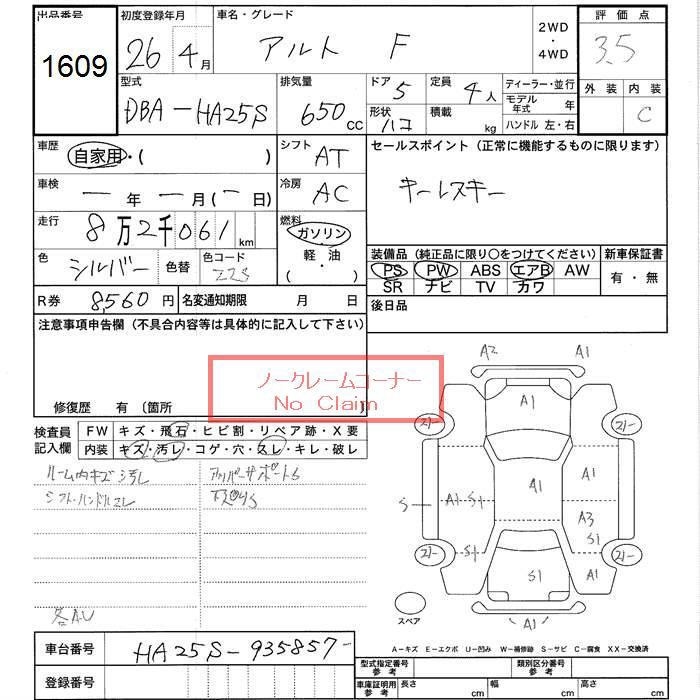 出品番号 初度登録年月 車名・グレード 2WD 評価点
1609 26 4月 アルト F 4WD 3.5
型式 排気量 ドア 5 定員 4人 ディーラー・並行 外装 内装
DBA-HA25S 650cc 形状 ハコ 積載 kg モデル年式 年 C
ハンドル 左・右
車歴 自家用・( ) シフト AT セールスポイント(正常に機能するものに限ります)
車検 ー年 ー月(ー日) 冷房 AC キーレスキー
走行 8万2千061km 燃料 ガソリン
軽・油
( )
色 シルバー 色替 色コード Z2S 装備品(純正品に限り○をつけてください) 新車保証書
PS PW ABS エアB AW 有・無
R券 8,560円 名変通知期限 月 日 SR ナビ TV カワ
注意事項申告欄(不具合内容等は具体的に記入して下さい) 後日品
ノークレームコーナー
No Claim
修復歴 有 〔箇所 〕
検査員 FW キズ・飛石・ヒビ割・リペア跡・X要
記入欄 内装 キズ・汚レ・コゲ・穴・スレ・キレ・破レ
ルーム内キズ汚レ アッパーサポートS
シフト・ハンドルスレ 下廻りS
各AU
A2 A1
A1
21- 21-
S A1 S1 A1 A3
S1
21- S1 S1 A1 21-
A1
スペア
A-キズ E-エクボ U-凹み W-補修跡 S-サビ C-腐食 XX-交換済
車台番号 HA25S-935857-
登録番号
型式指定番号 参考 類別区分番号 参考
車庫証明用 参考 長さ cm 幅 cm 高さ cm